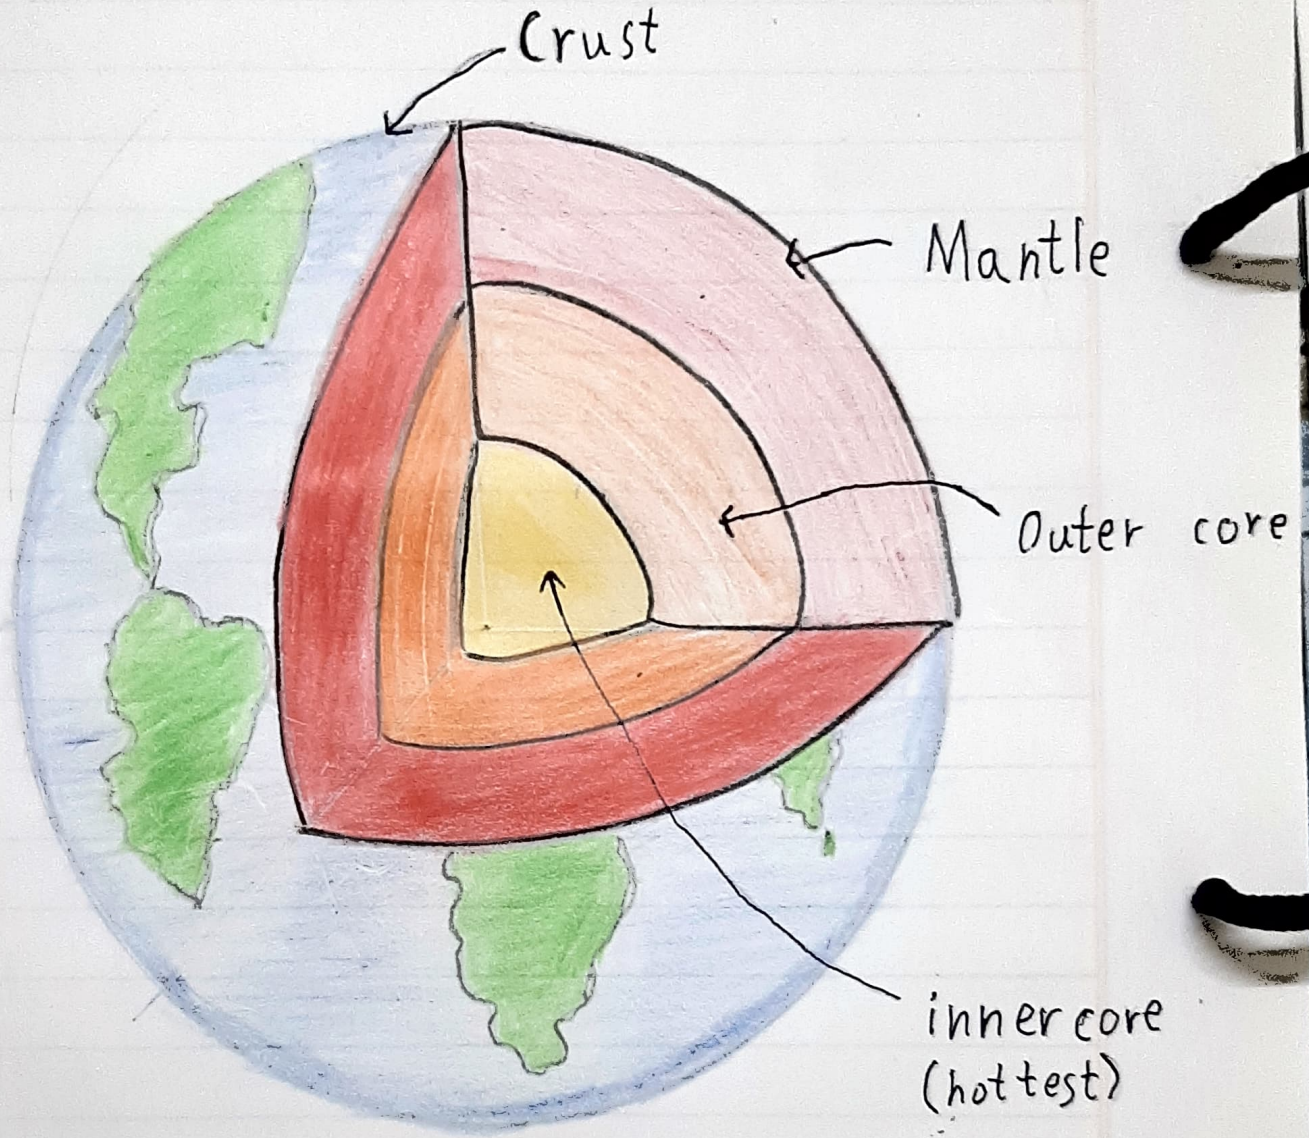 Crust
Mantle
Outer core
inner core
(hottest)